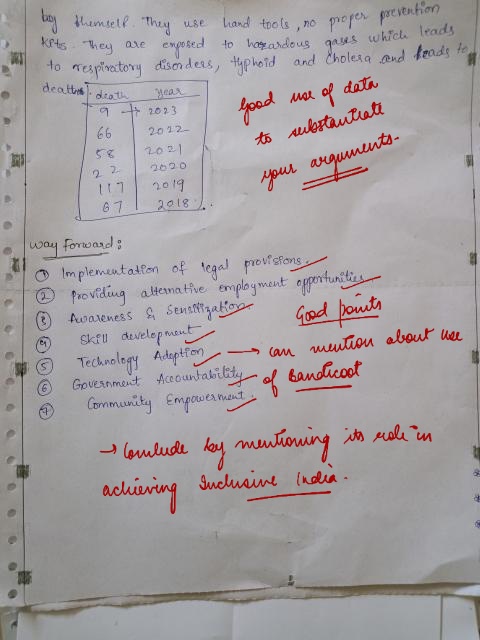 by themself. They use hand tools, no proper prevention
kits. They are exposed to hazardous gases which leads
to respiratory disorders, typhoid and cholera and leads to
deaths.
death year
9 → 2023
66 2022
58 2021
22 2020
117 2019
67 2018
Good use of data
to substantiate
your arguments.
way forward:
① Implementation of legal provisions.
② Providing alternative employment opportunities
③ Awareness & Sensitization
④ Skill development
Good points
⑤ Technology Adoption → can mention about use
of Bandicoot
⑥ Government Accountability
⑦ Community Empowerment.
→ Conclude by mentioning its role in
achieving Inclusive India.